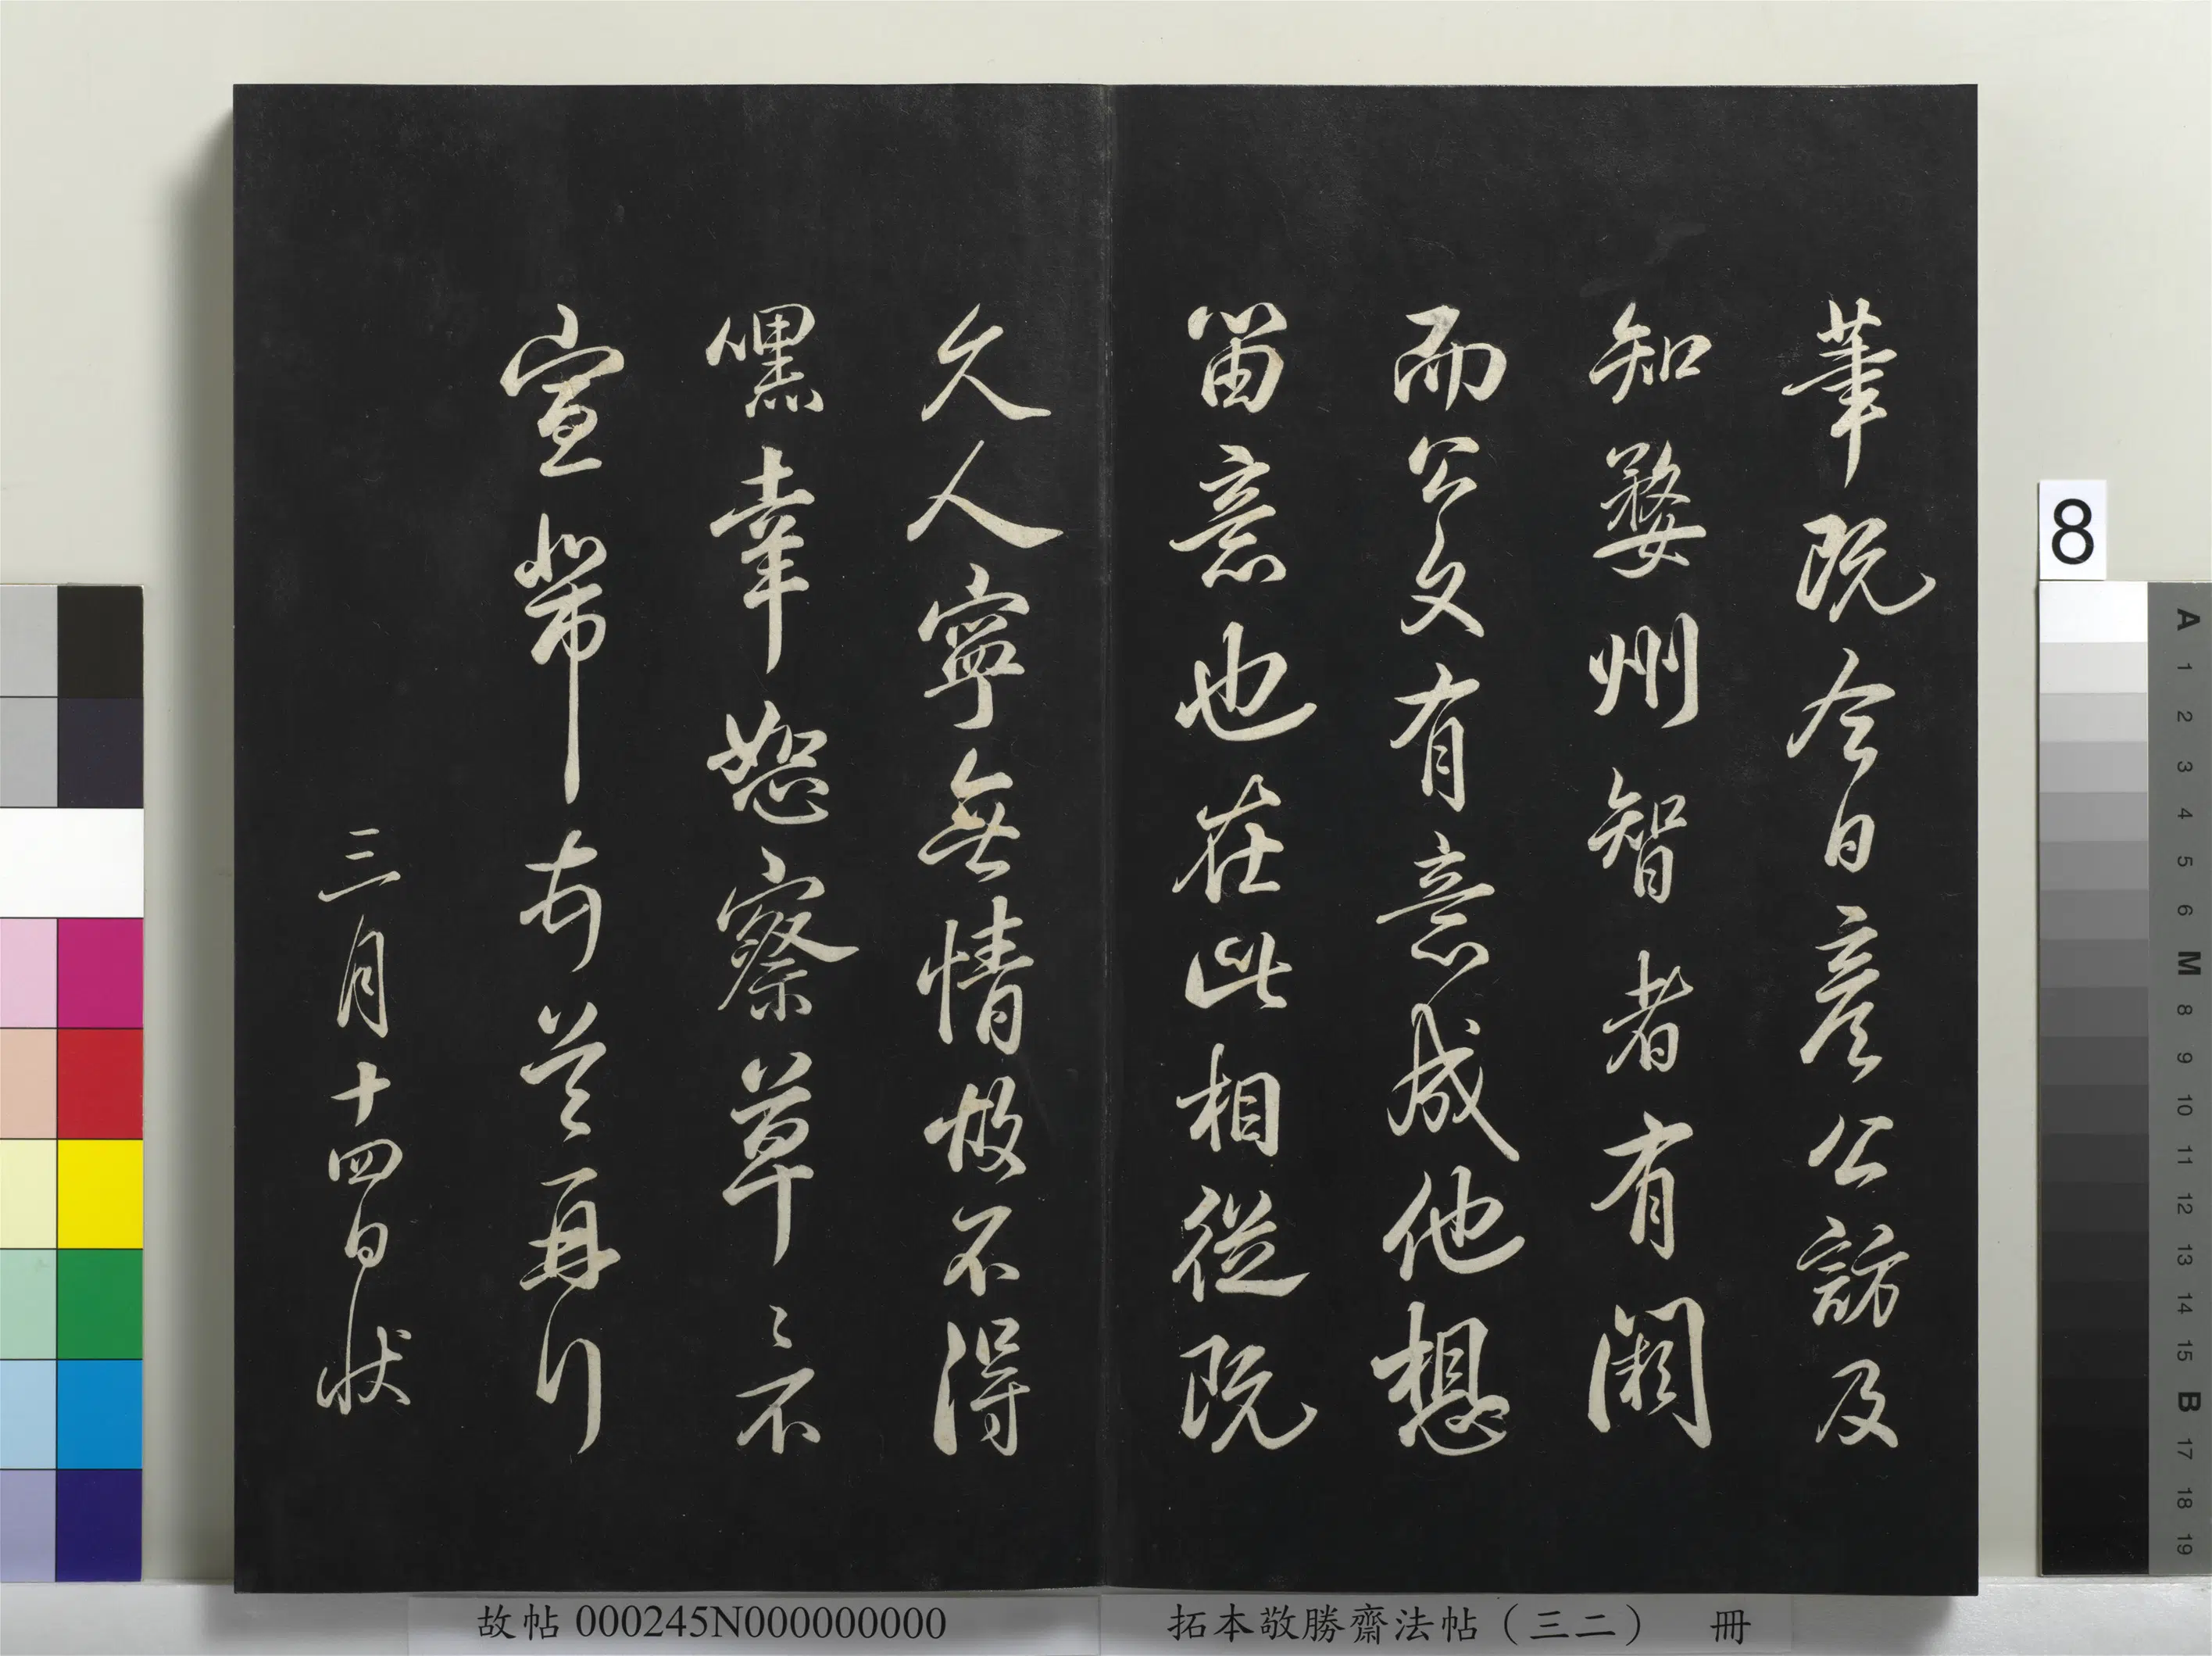 筆既今日彥公訪及
知婺州智者有闕
而公文有意成他想
留意也在此相從既
久人寧無情故不得
嘿幸恕察草〻不
宣 再行
三月十四日狀
故帖 000245N000000000
拓本敬勝齋法帖（三二） 冊
8
A
1
2
3
4
5
6
M
8
9
10
11
12
13
14
15
B
17
18
19